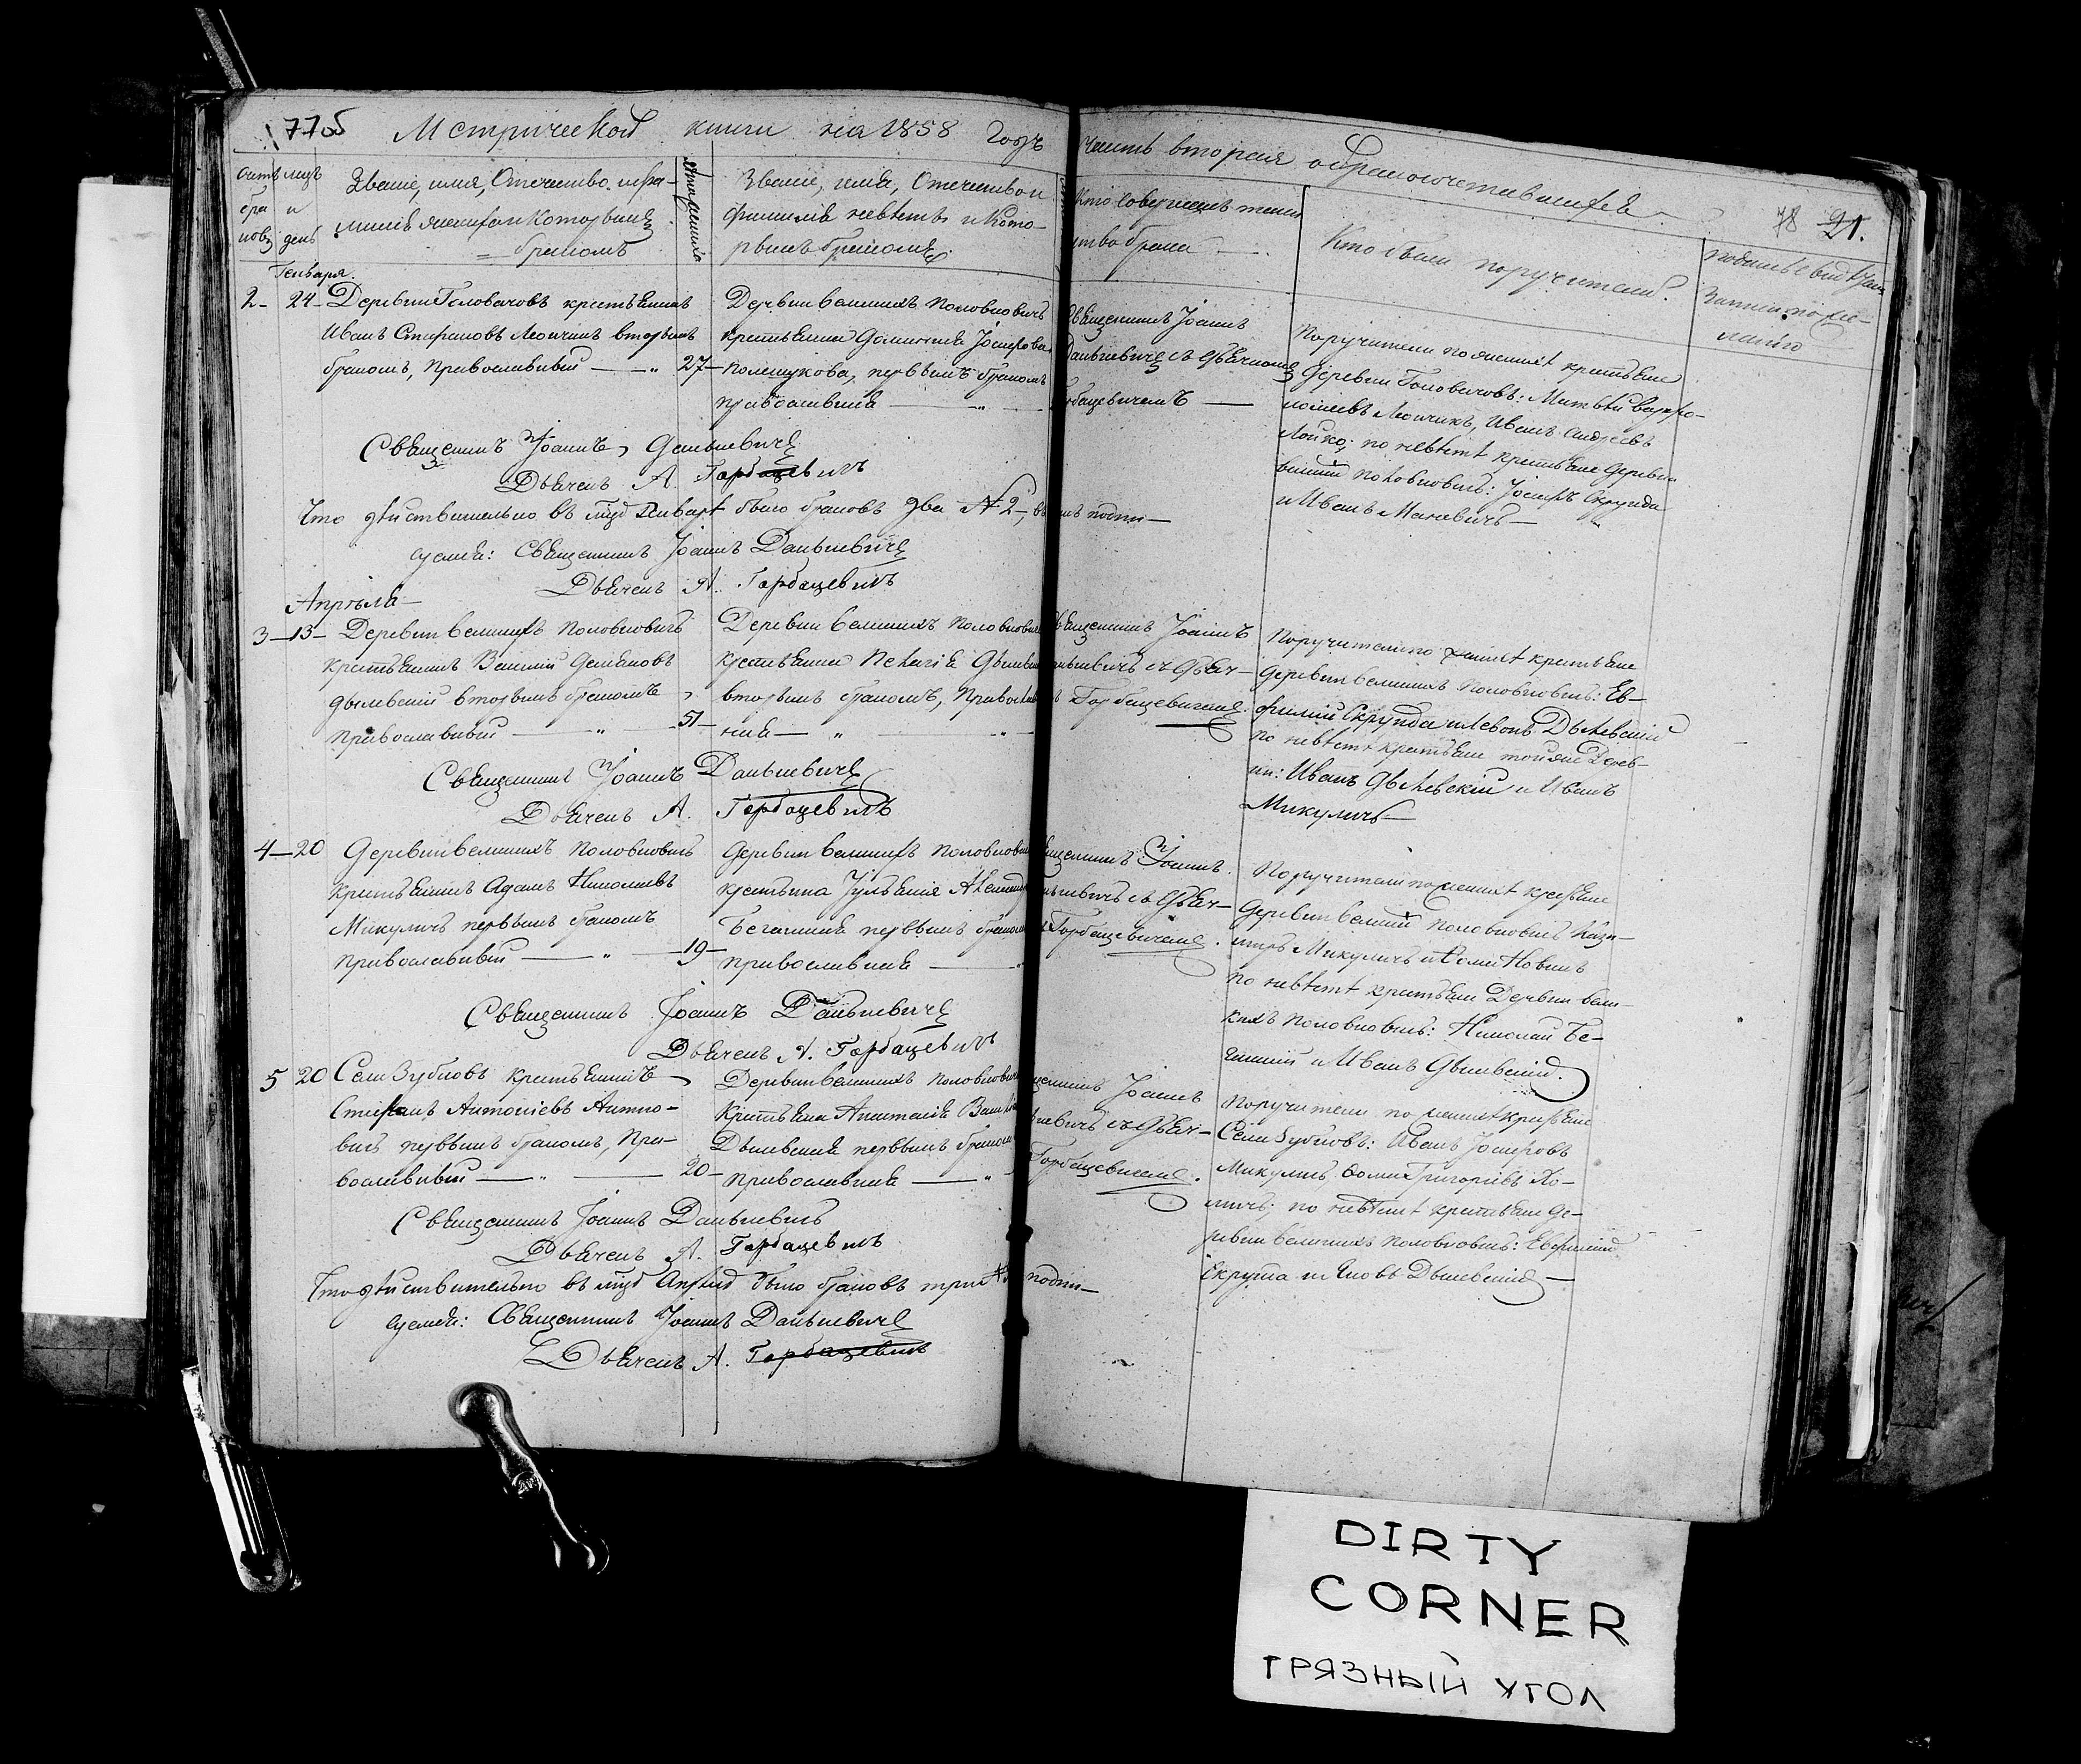 77об Метрической книги на 1858 Годъ
Часть вторая о бракосочетавшихся
78 21.
Счетъ браковъ
и день
Званіе, имя, Отечество, и фа-
милія жениха и которымъ
бракомъ
Званіе, имя, Отечество и
фамилія невѣсты и Кото-
рымъ бракомъ
Кто совершалъ таин
ство брака
Кто были поручители.
Генваря.
2 - 24 - Деревни Головачовъ крестьянинъ
Иванъ Стефановъ Леончикъ вторымъ
бракомъ, Православный — „
27 -
Деревни великихъ Половковичъ
крестьянка Доминика Іосифова
Полещукова, первымъ бракомъ
православная — „ —
Священникъ Іоаннъ
Данькевичъ съ Дьячкомъ
Горбацевичемъ —
Поручители по женихѣ крестьяне
деревни Головачовъ: Матвѣй Варфо-
ломеевъ Леончикъ, Иванъ Андреевъ
Лойко; по невѣстѣ крестьяне деревни
великихъ Половковичъ: Іосифъ Скрунда
и Иванъ Маневичъ —
Священникъ Іоаннъ Данькевичъ
Дьячекъ А. Горбацевичъ
Что дѣйствительно въ мцѣ Январѣ было браковъ два № 2, въ томъ подпи-
суемся: Священникъ Іоаннъ Данькевичъ
Дьячекъ А. Горбацевичъ
Апрѣля
3 - 13 - Деревни великихъ Половковичъ
крестьянинъ Василій Демьяновъ
Дылевскій вторымъ бракомъ,
православный — „ — 51 -
Деревни великихъ Половковичъ
крестьянка Пелагія
вторымъ бракомъ, Православ
ная — „ —
Священникъ Іоаннъ
Данькевичъ съ Дьяч-
Горбацевичемъ.
Поручители по женихѣ крестьяне
деревни великихъ Половковичъ: Ев-
фимій Скрунда и Левонъ Дылевскій
по невѣстѣ крестьяне той же Дерев-
ни: Иванъ Дылевскій и Иванъ
Микуличъ —
Священникъ Іоаннъ Данькевичъ
Дьячекъ А. Горбацевичъ
4 - 20 Деревни великихъ Половковичъ
Крестьянинъ Адамъ Николаевъ
Микуличъ первымъ бракомъ
православный — „ — 19 -
Деревни великихъ Половковичъ
крестьянка Іульянія
первымъ бракомъ
православная —
Священникъ Іоаннъ.
Данькевичъ съ Дьяч-
Горбацевичемъ.
Поручители по женихѣ крестьяне
Деревни великихъ Половковичъ Кази-
миръ Микуличъ и
по невѣстѣ крестьяне Деревни вели-
кихъ Половковичъ: Николай Бе-
и Иванъ Дылевскій.
Священникъ Іоаннъ Данькевичъ
Дьячекъ А. Горбацевичъ
5 20 Села Зубковъ крестьянинъ
Стефанъ Антоніевъ Антно-
вичъ первымъ бракомъ, Пра-
вославный — „ — 20 -
Деревни великихъ Половковичъ
Крестьянка Анастасія
Дылевская первымъ бракомъ
православная — „
Священникъ Іоаннъ
Данькевичъ съ Дьяч-
Горбацевичемъ.
Поручители по женихѣ крестьяне
Села Зубковъ: Иванъ Іосифовъ
Микуличъ, Ѳома Григорьевъ Хо-
мичъ; по невѣстѣ крестьяне де-
ревни великихъ Половковичъ: Евфимій
Скрунда и Дылевскій —
Священникъ Іоаннъ Данькевичъ
Дьячекъ А. Горбацевичъ
Что дѣйствительно въ мцѣ Апрѣлѣ было браковъ три подпи-
суемся: Священникъ Іоаннъ Данькевичъ
Дьячекъ А. Горбацевичъ
DIRTY
CORNER
ГРЯЗНЫЙ УГОЛ